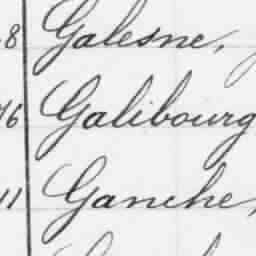 8 Galesne,
76 Galibourg
11 Ganche,